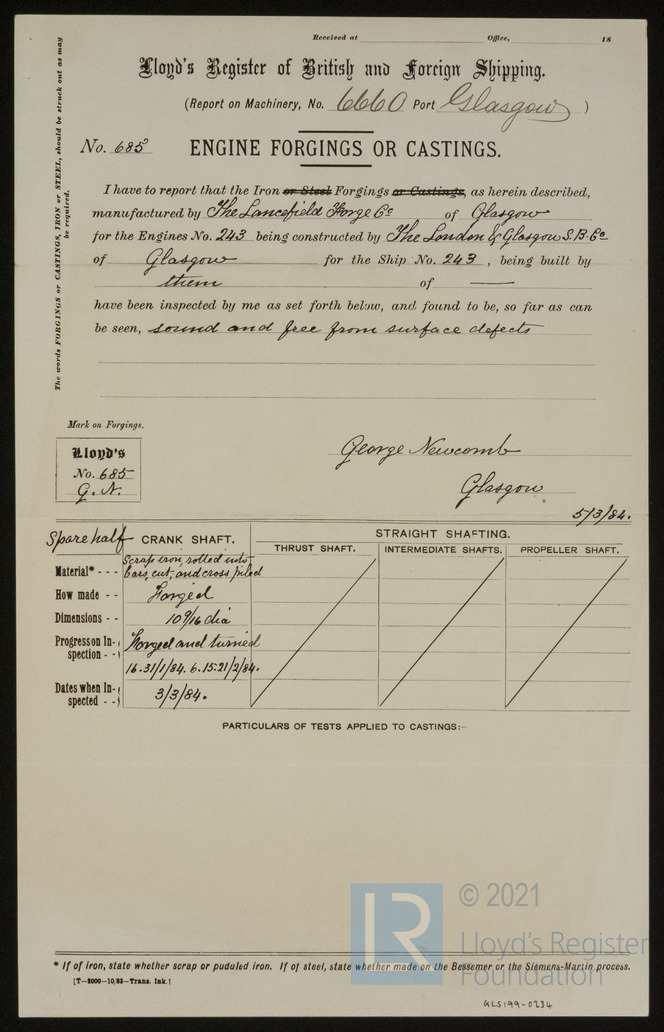 Received at Office, 18
Lloyd's Register of British and Foreign Shipping.
(Report on Machinery, No. 6660 Port Glasgow)
No. 685
ENGINE FORGINGS OR CASTINGS.
The words FORGINGS or CASTINGS, IRON or STEEL, should be struck out as may be required.
I have to report that the Iron or Steel Forgings or Castings, as herein described,
manufactured by The Lancefield Forge Co of Glasgow
for the Engines No. 243 being constructed by The London & Glasgow S.B. Co
of Glasgow for the Ship No. 243, being built by
them of —
have been inspected by me as set forth below, and found to be, so far as can
be seen, sound and free from surface defects
Mark on Forgings.
Lloyd's
No. 685
G. N.
George Newcomb
Glasgow
5/3/84.
Spare half CRANK SHAFT.
STRAIGHT SHAFTING.
THRUST SHAFT. INTERMEDIATE SHAFTS. PROPELLER SHAFT.
Material* - - - Scrap iron, rolled into
bars, cut, and cross piled
How made - - Forged
Dimensions - - 10 9/16 dia
Progress on In-
spection - - Forged and turned
16.31/1/84. 6.15.21/2/84.
Dates when In-
spected - - 3/3/84.
PARTICULARS OF TESTS APPLIED TO CASTINGS:—
© 2021
LR
Lloyd's Register
Foundation
* If of iron, state whether scrap or puduled iron. If of steel, state whether made on the Bessemer or the Siemens-Martin process.
[T—2000—10/83—Trans. Ink.]
GLS199-0234